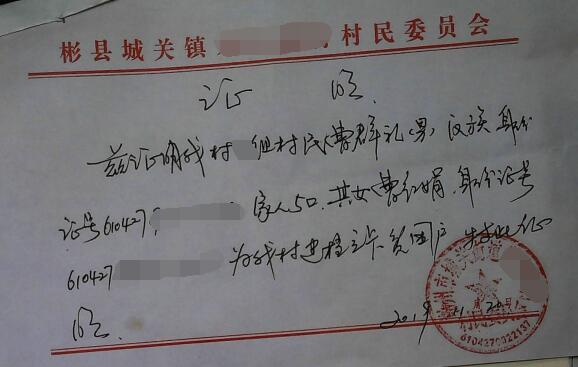 彬县城关镇 村民委员会
证 明
兹证明我村 组村民曹群礼(男)汉族 身份
证号610427 家人5口.其女曹红娟.身份证号
610427 为我村建档立卡贫困户 特此证
明.
2019.11.20
6104270022137